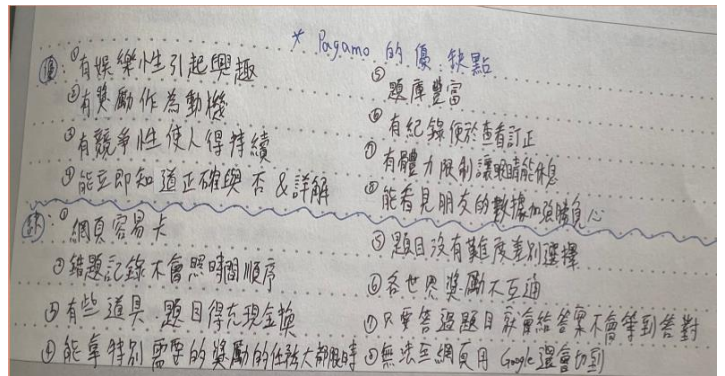 * Pagamo 的優.缺點
優:①有娛樂性引起興趣
②有獎勵作為動機
③有競爭性使人得持續
④能立即知道正確與否&詳解
⑤題庫豐富
⑥有紀錄便於查看訂正
⑦有體力限制讓眼睛能休息
⑧能看見朋友的數據加強勝負心
缺:①網頁容易卡
②錯題記錄不會照時間順序
③有些道具 題目得充現金換
④能拿特別需要的獎勵的任務大都限時
⑤題目沒有難度差別選擇
⑥各世界獎勵不互通
⑦只要答過題目就會給答案不會等到答對
⑧無法至網頁用 Google 還會切到